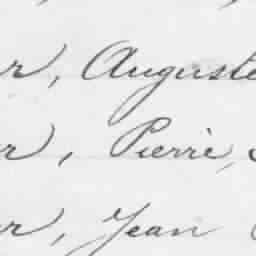 r, Auguste
r, Pierre,
r, Jean